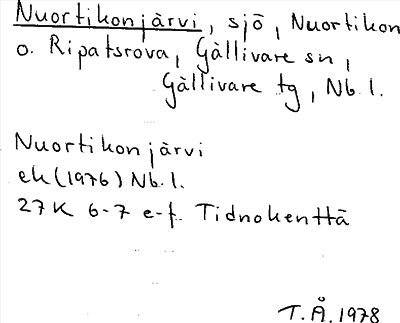 Nuortikonjärvi, sjö, Nuortikon
o. Ripatsrova, Gällivare sn,
Gällivare tg, Nb. l.
Nuortikonjärvi
ek (1976) Nb. l.
27K 6-7 e-f. Tidnokenttä
T.Å. 1978